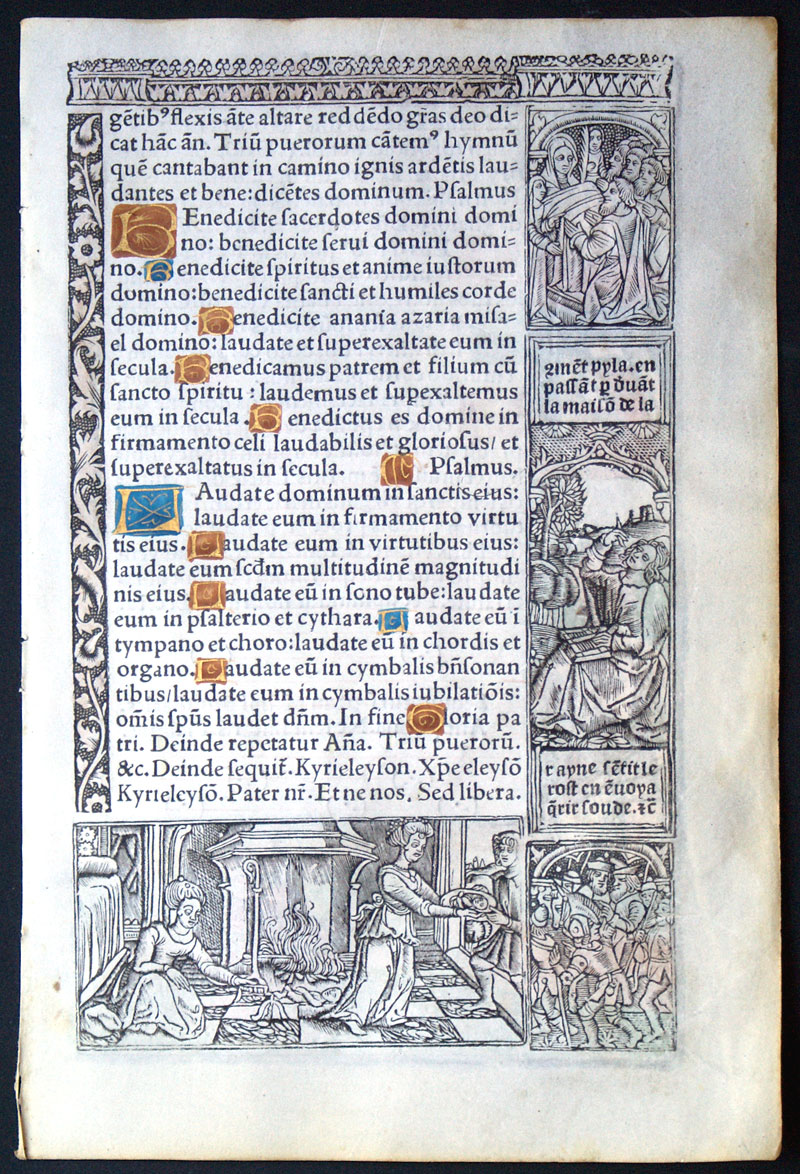 gẽtibꝰ flexis ãte altare reddẽdo gr̃as deo di⸗
cat hãc ãn. Triũ puerorum cãtemꝰ hymnũ
quẽ cantabant in camino ignis ardẽtis lau⸗
dantes et bene:dicẽtes dominum. Pſalmus
BEnedicite ſacerdotes domini domi
no: benedicite ſerui domini domi⸗
no. Benedicite ſpiritus et anime iuſtorum
domino:benedicite ſancti et humiles corde
domino. Benedicite anania azaria miſa⸗
el domino: laudate et superexaltate eum in
ſecula. Benedicamus patrem et filium cũ
ſancto ſpiritu : laudemus et ſuꝑexaltemus
eum in ſecula. Benedictus es domine in
firmamento celi laudabilis et glorioſus/ et
ſuperexaltatus in ſecula. Pſalmus.
LAudate dominum in ſanctis eius:
laudate eum in firmamento virtu
tis eius. Laudate eum in virtutibus eius:
laudate eum ſcd̃m multitudinẽ magnitudi
nis eius. Laudate eũ in ſono tube:laudate
eum in pſalterio et cythara. Laudate eũ ĩ
tympano et choro:laudate eũ in chordis et
organo. Laudate eũ in cymbalis bñſonan
tibus/laudate eum in cymbalis iubilatiõis:
om̃is ſpũs laudet dñm. In fine Gloria pa
tri. Deinde repetatur Aña. Triũ puerorũ.
&c. Deinde ſequit̃. Kyrieleyſon. Xp̃e eleyſõ
Kyrieleyſõ. Pater nr̃. Et ne nos. Sed libera.
gmẽt pyla. en
paſſãt ꝑ deuãt
la maiſõ de la
rayne ſẽtit le
roſt en ẽuoya
q̃rir ſoude. ⁊c̃